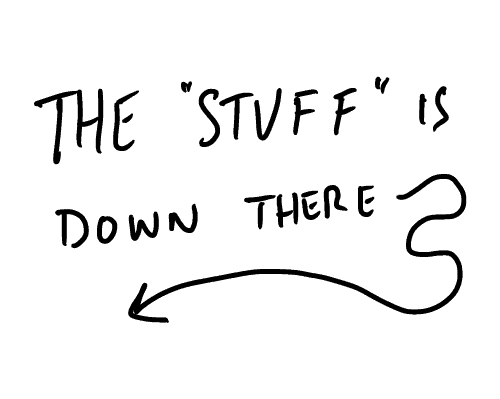 THE "STUFF" IS
DOWN THERE